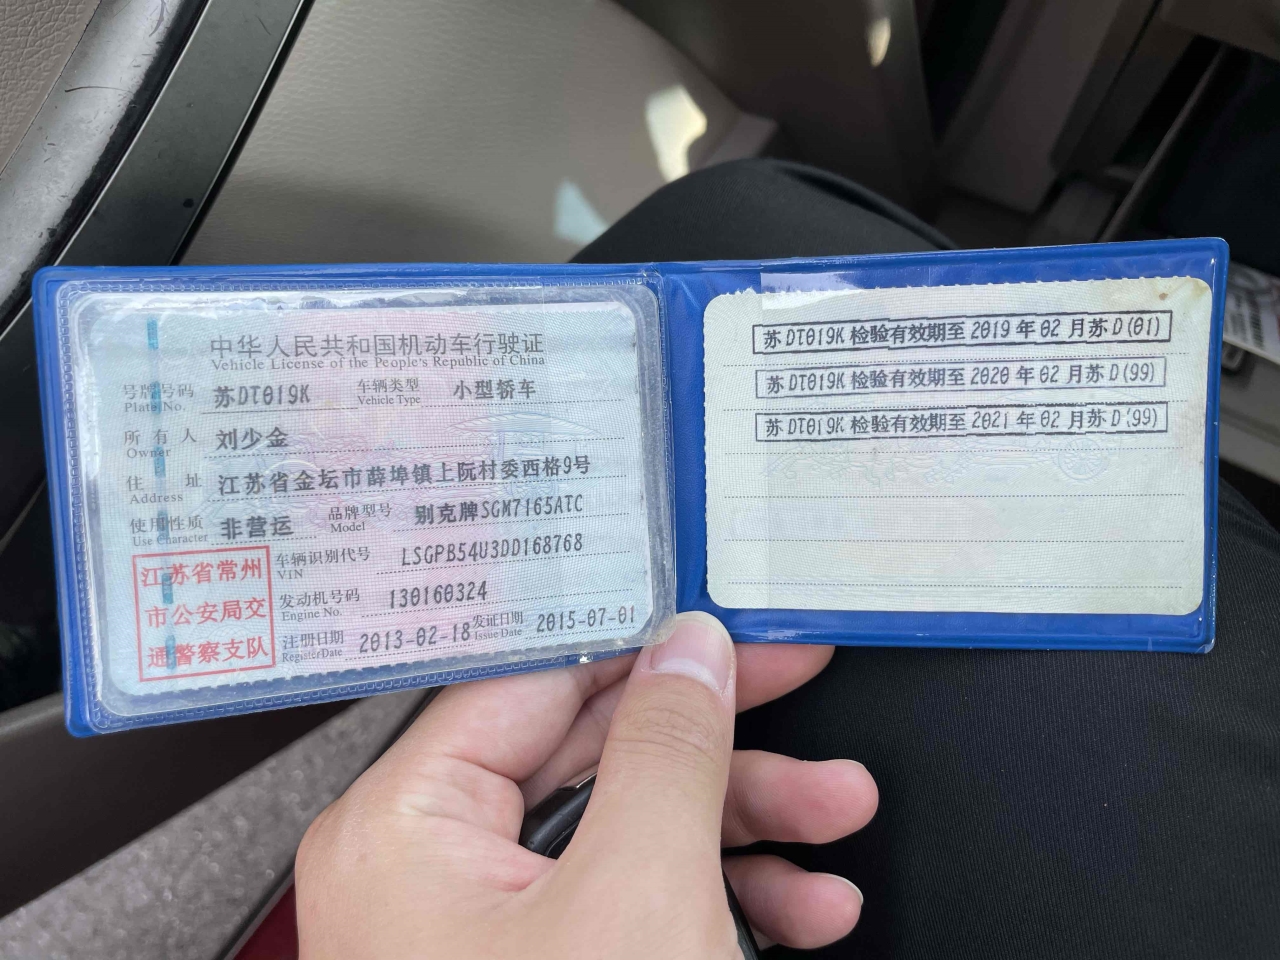 中华人民共和国机动车行驶证
Vehicle License of the People's Republic of China
号牌号码 苏DT019K 车辆类型 小型轿车
Plate No. Vehicle Type
所有人 刘少金
Owner
住址 江苏省金坛市薛埠镇上阮村委西格9号
Address
使用性质 非营运 品牌型号 别克牌SGM7165ATC
Use Character Model
江苏省常州
市公安局交
通警察支队
车辆识别代号 LSGPB54U3DD168768
VIN
发动机号码 130160324
Engine No.
注册日期 2013-02-18 发证日期 2015-07-01
Register Date Issue Date
苏DT019K检验有效期至2019年02月苏D(01)
苏DT019K检验有效期至2020年02月苏D(99)
苏DT019K检验有效期至2021年02月苏D(99)